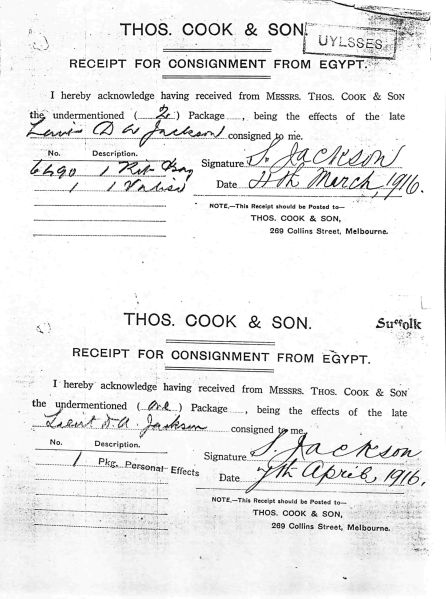 THOS. COOK & SON.
UYLSSES
RECEIPT FOR CONSIGNMENT FROM EGYPT.
I hereby acknowledge having received from MESSRS. THOS. COOK & SON
the undermentioned ( 2 ) Package ......, being the effects of the late
D A Jackson consigned to me.
No. Description.
6490 1 Kit Bag
1 1 Valise
Signature S. JACKSON
Date 11th March, 1916.
NOTE,—This Receipt should be Posted to—
THOS. COOK & SON,
269 Collins Street, Melbourne.
THOS. COOK & SON.
Suffolk
RECEIPT FOR CONSIGNMENT FROM EGYPT.
I hereby acknowledge having received from MESSRS. THOS. COOK & SON
the undermentioned ( one ) Package ......, being the effects of the late
Lieut D. A. Jackson consigned to me.
No. Description.
1 Pkg. Personal Effects
Signature S. Jackson
Date 7th April, 1916.
NOTE,—This Receipt should be Posted to—
THOS. COOK & SON,
269 Collins Street, Melbourne.